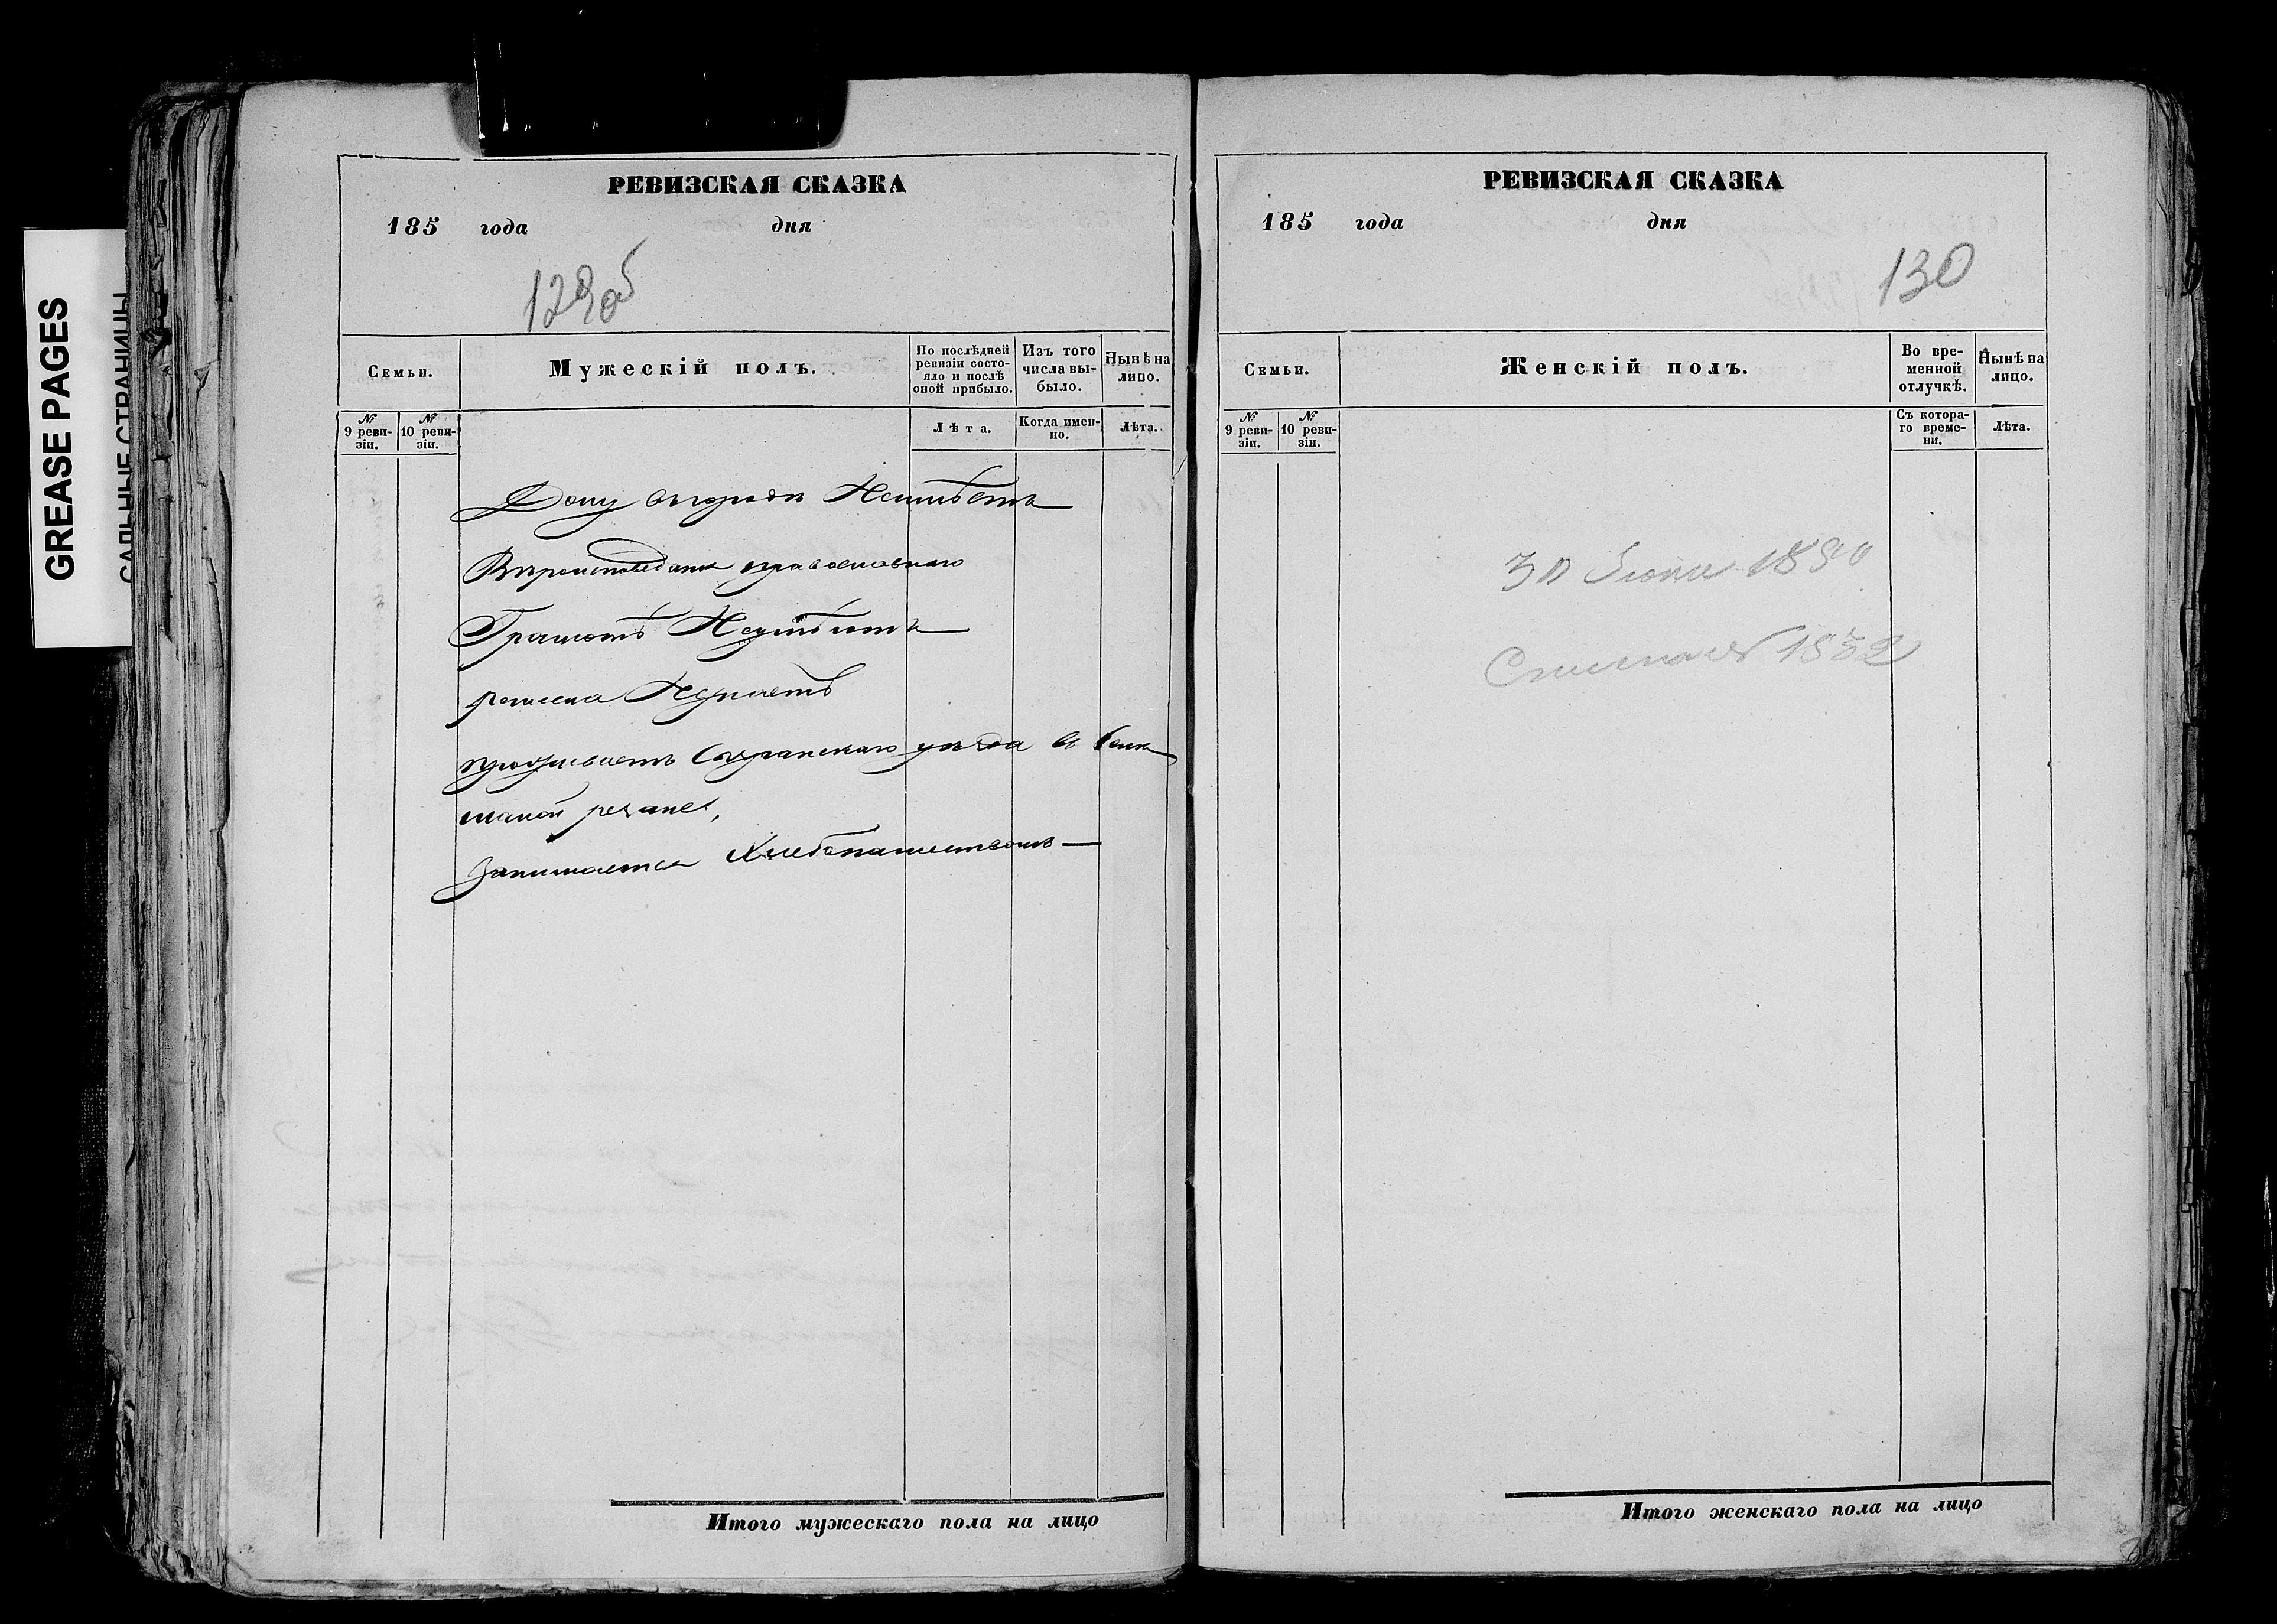 GREASE PAGES
САЛЬНЫЕ СТРАНИЦЫ
РЕВИЗСКАЯ СКАЗКА
185 года дня
129об
Семьи.
Мужескій полъ.
По послѣдней ревизіи состояло и послѣ оной прибыло.
Изъ того числа выбыло.
Нынѣ на лицо.
№ 9 ревизіи.
№ 10 ревизіи.
Лѣта.
Когда именно.
Лѣта.
Дому въ городѣ Неимѣетъ
Вѣроисповеданія православнаго
Грамотѣ Неумѣетъ
ремесла Незнаетъ
проживаетъ Сызранскаго уѣзда в
занимается Хлебопашествомъ
Итого мужескаго пола на лицо
РЕВИЗСКАЯ СКАЗКА
185 года дня
130
Семьи.
Женскій полъ.
Во временной отлучкѣ.
Нынѣ на лицо.
№ 9 ревизіи.
№ 10 ревизіи.
Съ котораго времени.
Лѣта.
30
Итого женскаго пола на лицо